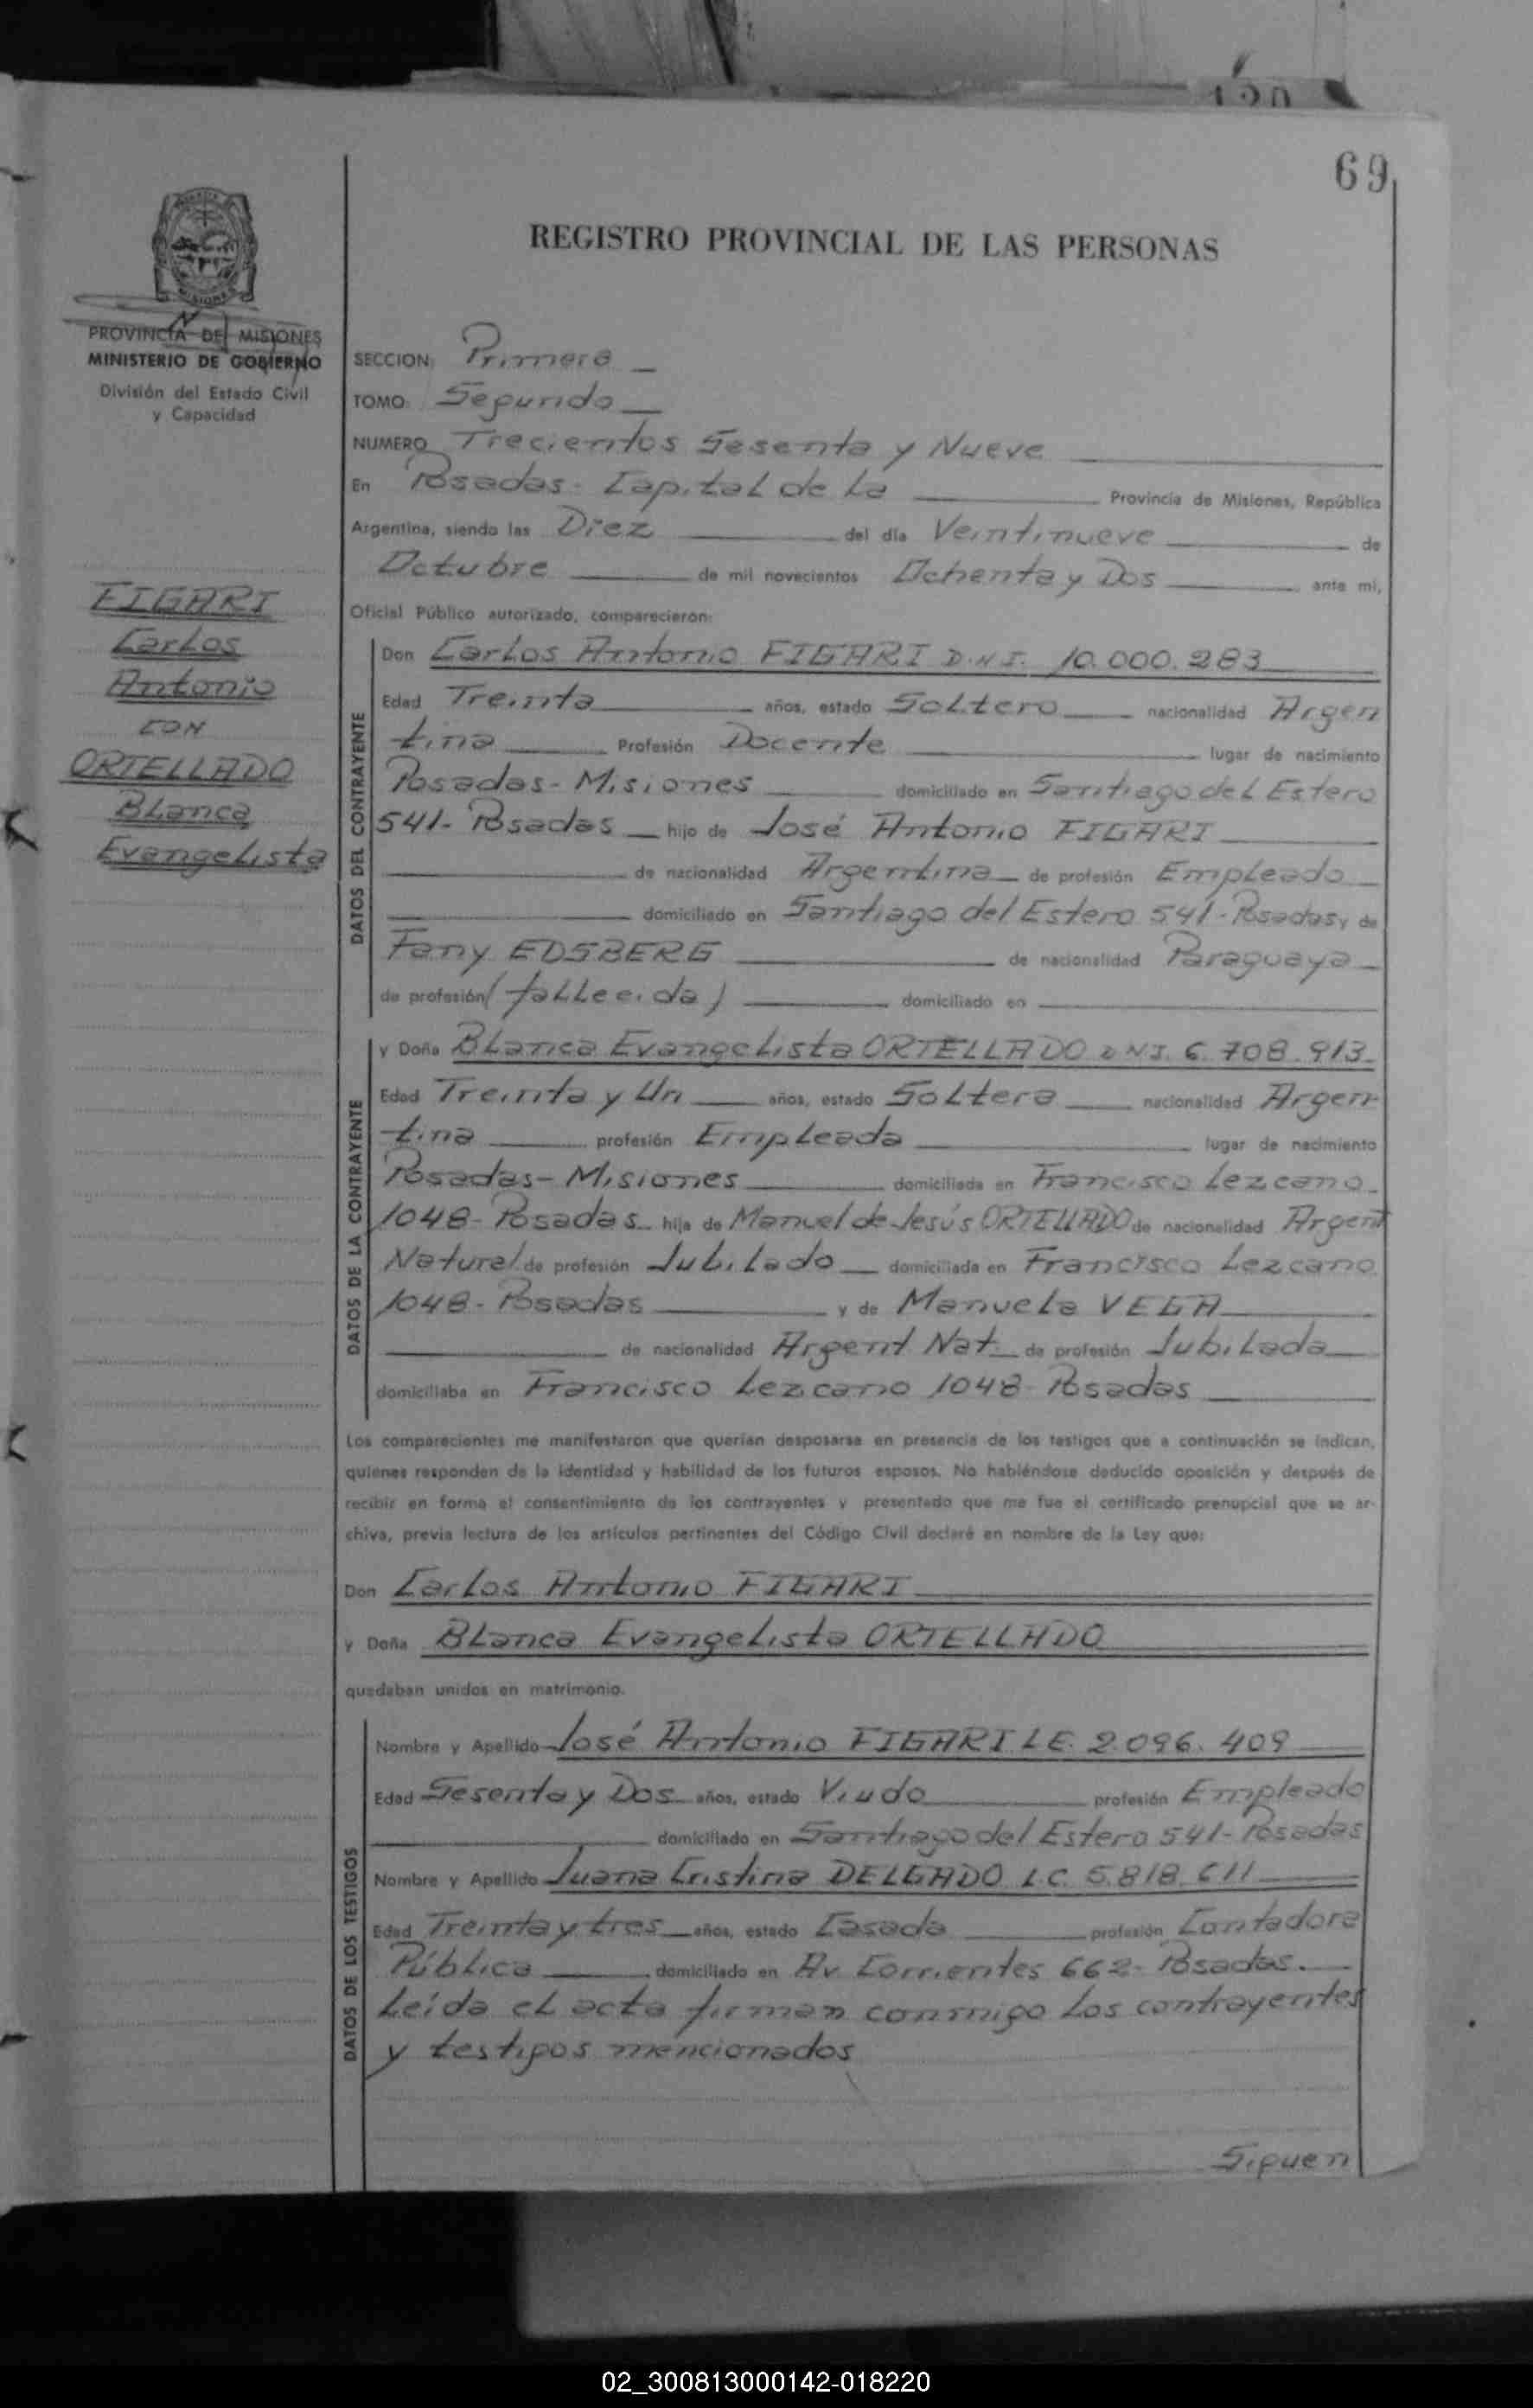 120
69
REGISTRO PROVINCIAL DE LAS PERSONAS
MISIONES
PROVINCIA DE MISIONES
MINISTERIO DE GOBIERNO
División del Estado Civil
y Capacidad
SECCION: Primera
TOMO: Segundo
NUMERO Trecientos Sesenta y Nueve
En Posadas - Capital de La Provincia de Misiones, República
Argentina, siendo las Diez del día Veintinueve de
Octubre de mil novecientos Ochenta y Dos ante mi,
Oficial Público autorizado, comparecieron:
FIGARI
Carlos
Antonio
CON
ORTELLADO
Blanca
Evangelista
DATOS DEL CONTRAYENTE
Don Carlos Antonio FIGARI D.N.I. 10.000.283
Edad Treinta años, estado Soltero nacionalidad Argen
tina Profesión Docente lugar de nacimiento
Posadas - Misiones domiciliado en Santiago del Estero
541 - Posadas hijo de José Antonio FIGARI
de nacionalidad Argentina de profesión Empleado
domiciliado en Santiago del Estero 541 - Posadas y de
Fany EDSBERG de nacionalidad Paraguaya
de profesión (fallecida) domiciliado en
DATOS DE LA CONTRAYENTE
y Doña Blanca Evangelista ORTELLADO DNI. 6.708.913
Edad Treinta y Un años, estado Soltera nacionalidad Argen
tina profesión Empleada lugar de nacimiento
Posadas - Misiones domiciliada en Francisco Lezcano
1048 - Posadas hija de Manuel de Jesús ORTELLADO de nacionalidad Argent
Natural de profesión Jubilado domiciliada en Francisco Lezcano
1048 - Posadas y de Manuela VEGA
de nacionalidad Argent Nat de profesión Jubilada
domiciliaba en Francisco Lezcano 1048 - Posadas
Los comparecientes me manifestaron que querían desposarse en presencia de los testigos que a continuación se indican,
quienes responden de la identidad y habilidad de los futuros esposos. No habiéndose deducido oposición y después de
recibir en forma el consentimiento de los contrayentes y presentado que me fue el certificado prenupcial que se ar-
chiva, previa lectura de los artículos pertinentes del Código Civil declaré en nombre de la Ley que:
Don Carlos Antonio FIGARI
y Doña Blanca Evangelista ORTELLADO
quedaban unidos en matrimonio.
DATOS DE LOS TESTIGOS
Nombre y Apellido José Antonio FIGARI LE. 2.096.409
Edad Sesenta y Dos años, estado Viudo profesión Empleado
domiciliado en Santiago del Estero 541 - Posadas
Nombre y Apellido Juana Cristina DELGADO L.C. 5.818.611
Edad Treinta y tres años, estado Casada profesión Contadora
Pública domiciliado en Av Corrientes 662 - Posadas.
Leída el acta firman conmigo los contrayentes
y testigos mencionados
Siguen
02_300813000142-018220